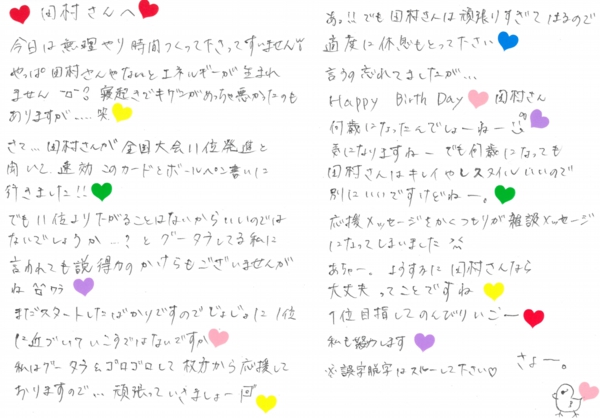 田村さんへ
今日は無理やり時間つくって下さってすいません
やっぱ田村さんやないとエネルギーが生まれ
ません 寝起きでキゲンがめっちゃ悪かったのも
ありますが....笑
さて...田村さんが全国大会11位発進と
聞いて、速効このカードとボールペン買いに
行きました!!
でも11位より下がることはないからいいのでは
ないでしょうか...? と グータラしてる私に
言われても説得力のかけらもございませんが
ね
まだスタートしたばかりですのでじょじょに1位
に近づいていこうではないですか
私はグータラ&ゴロゴロして枚方から応援して
おりますので... 頑張っていきましょー
あっ!!でも田村さんは頑張りすぎてはるので
適度に休息もとって下さい
言うの忘れてましたが...
Happy Birth Day 田村さん
何歳になったんでしょーねー
気になりますねー でも何歳になっても
田村さんはキレイやしスタイルいいので
別にいいですけどねー。
応援メッセージをかくつもりが雑談メッセージ
になってしまいました
あちゃー。ようするに田村さんなら
大丈夫ってことですね
1位目指してのんびりいこー
私も絡めします
※誤字脱字はスルーして下さい♡
さよー。